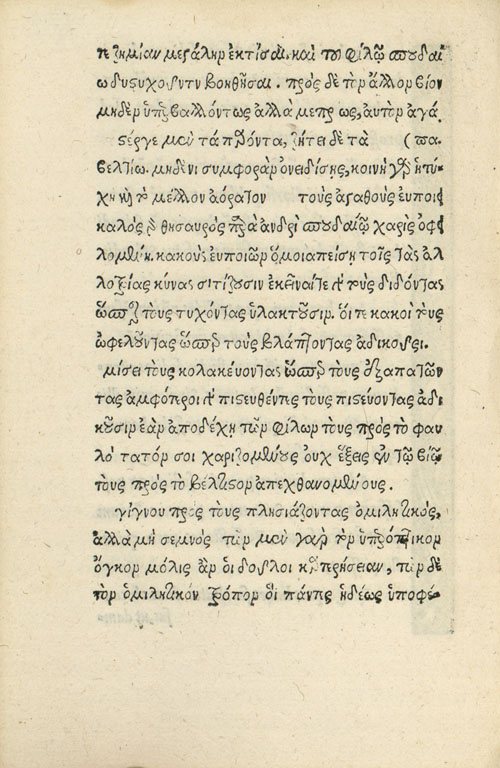 τε ζημίαν μεγάλην ἐκτίσαι. καὶ τῷ φίλῳ σπουδαί
ῳ δυςυχοῦντι βοηθῆσαι. πρὸς δὲ τὸν ἄλλον βίον
μηδὲν ὑπερβαλλόντως ἀλλὰ μετρίως, αὐτὸν ἀγά
ςέργε μὲν τὰ παρόντα, ζήτει δὲ τὰ (πα.
βελτίω. μηδενὶ συμφορὰν ὀνειδίσῃς, κοινὴ γὰρ ἡ τύ-
χη καὶ τὸ μέλλον ἀόρατον τοὺς ἀγαθοὺς εὐποίει
καλὸς γὰρ θησαυρὸς παρὰ ἀνδρὶ σπουδαίῳ χάρις ὀφει
λομένη. κακοὺς εὐποιῶν ὅμοια πείσῃ τοῖς τὰς ἀλ
λοτρίας κύνας σιτίζουσιν ἐκεῖναί τε γὰρ τοὺς διδόντας
ὥσπερ τοὺς τυχόντας ὑλακτοῦσιν. οἵ τε κακοὶ τοὺς
ὠφελοῦντας ὥσπερ τοὺς βλάπτοντας ἀδικοῦσι.
μίσει τοὺς κολακεύοντας ὥσπερ τοὺς ἐξαπατῶν
τας ἀμφότεροι γὰρ πιςευθέντες τοὺς πιςεύοντας ἀδι
κοῦσιν ἐὰν ἀποδέχῃ τῶν φίλων τοὺς πρὸς τὸ φαυ
λότατόν σοι χαριζομένους οὐχ ἕξεις ἐν τῷ βίῳ
τοὺς πρὸς τὸ βέλτιςον ἀπεχθανομένους.
γίγνου πρὸς τοὺς πλησιάζοντας ὁμιλητικός,
ἀλλὰ μὴ σεμνός τῶν μὲν γὰρ τὸν ὑπεροπτικὸν
ὄγκον μόλις ἂν οἱ δοῦλοι καρτερήσειαν, τῶν δὲ
τὸν ὁμιλητικὸν τρόπον οἱ πάντες ἡδέως ὑποφέ-